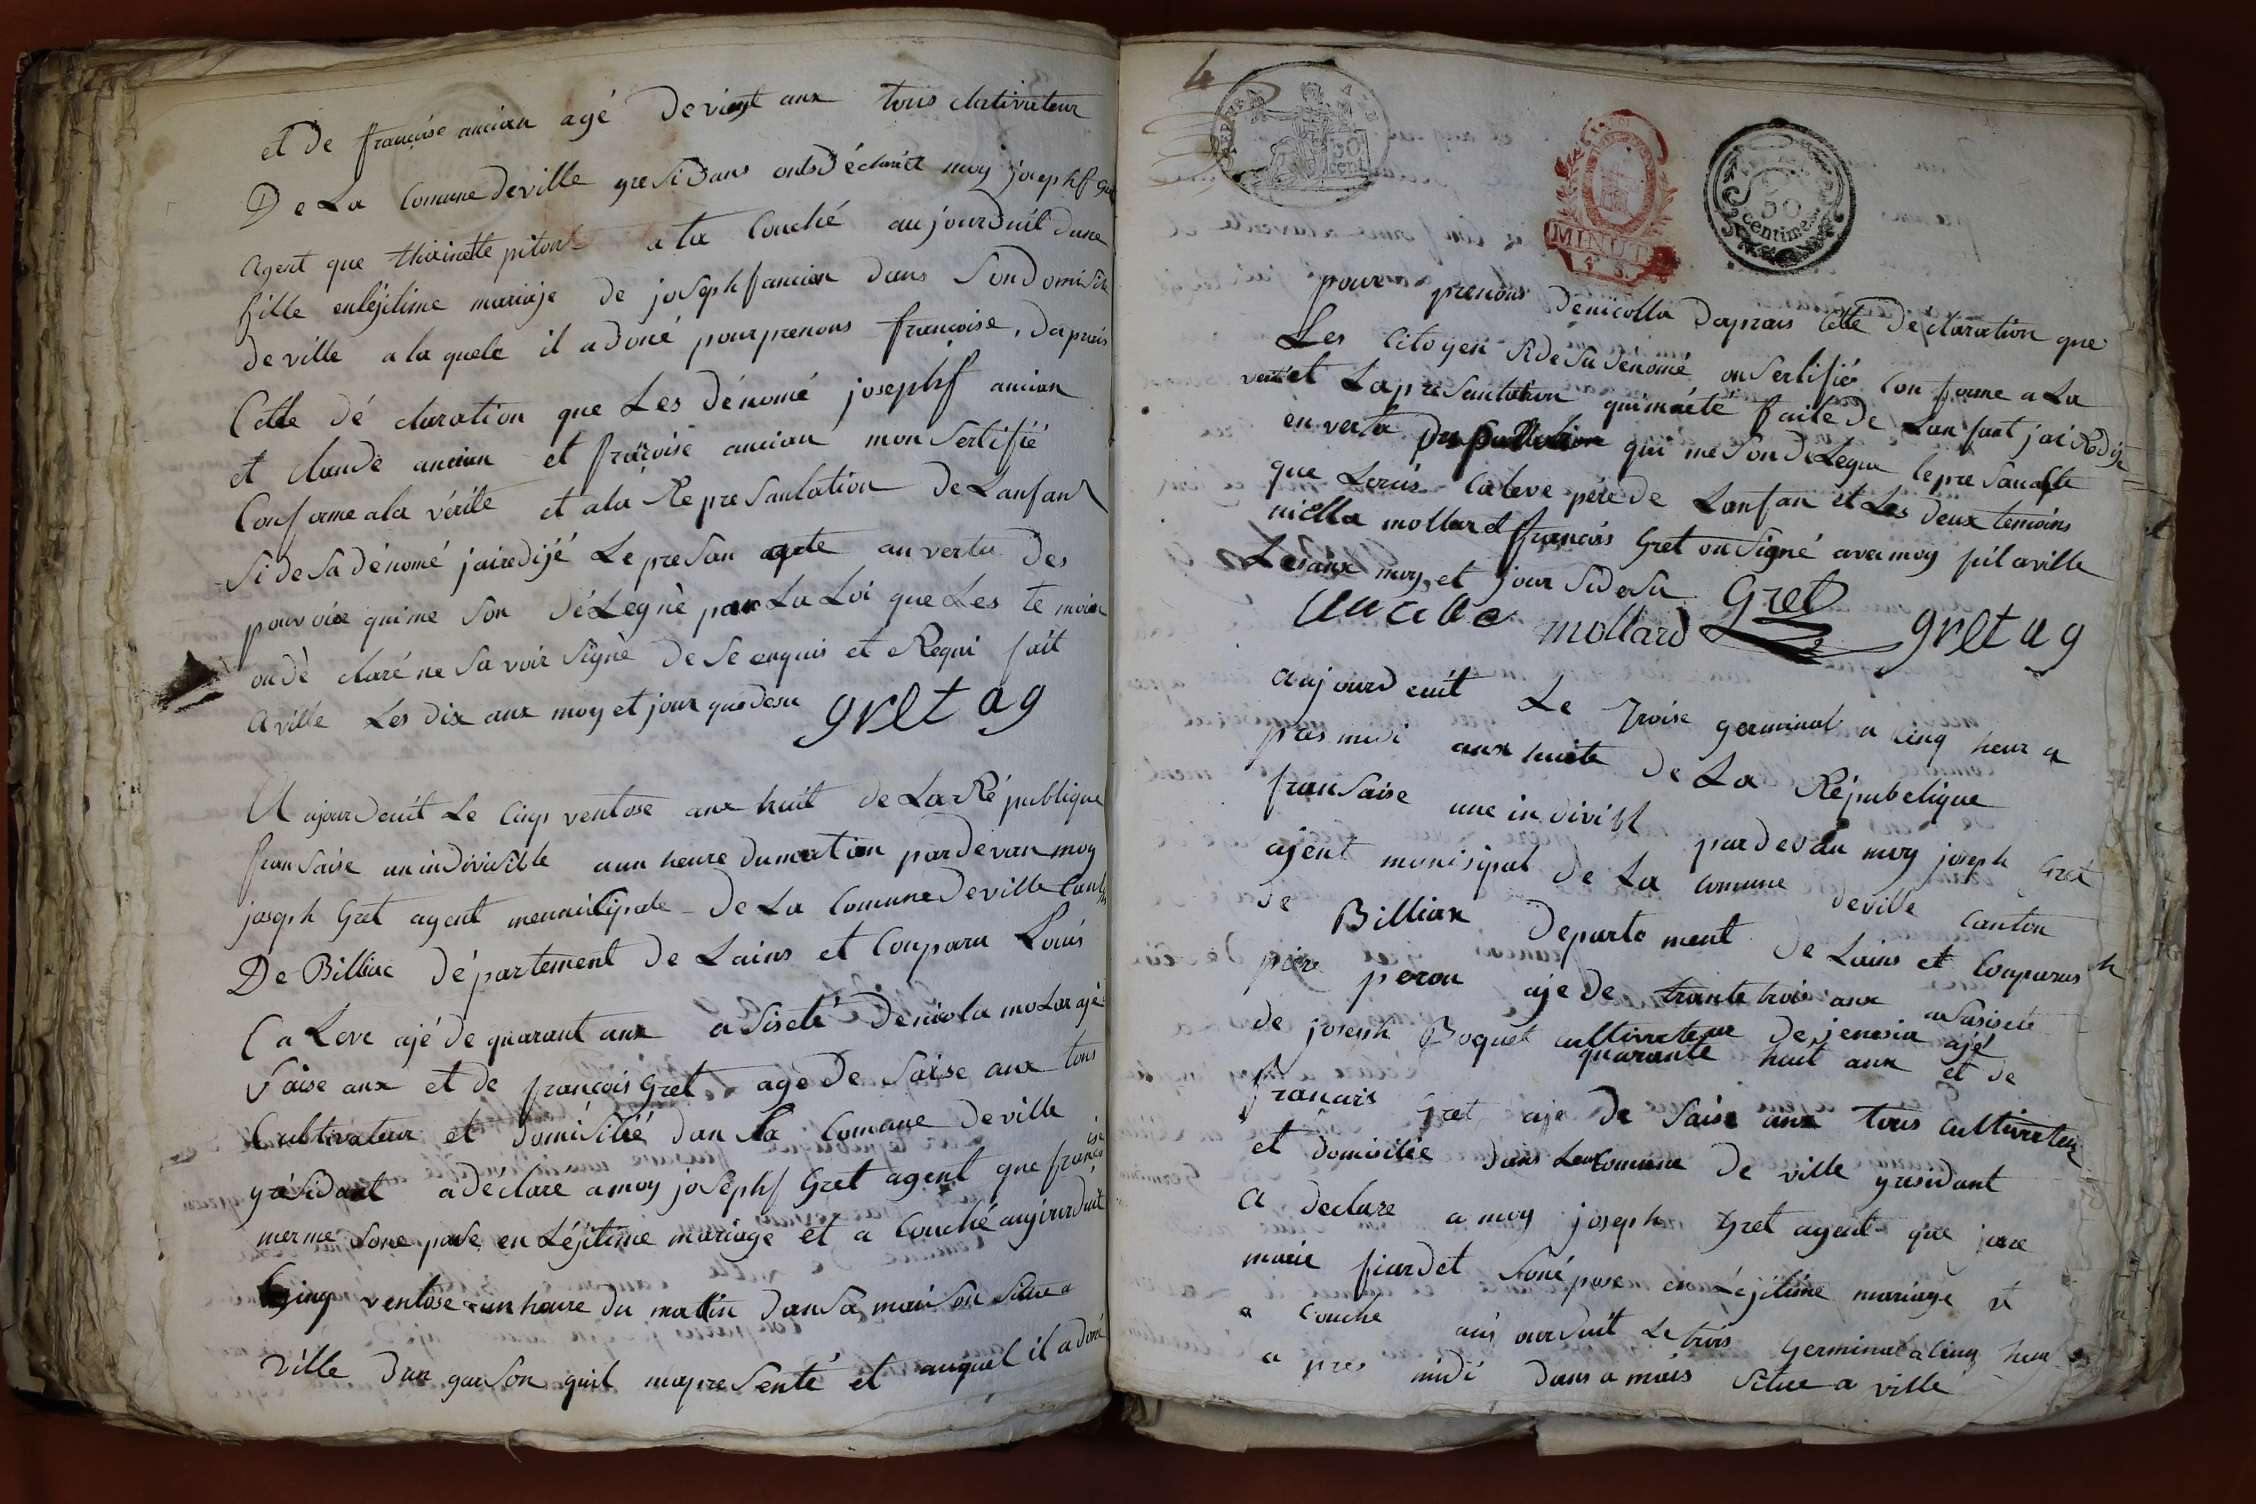 et de françoise ancian agé de vingt aux tous clutivuteur
De La Comune deville yresidans onts déclaréà moy josephf gret
agent que thoinette piton a la Couché aujourduit dune
fille enléjitime mariaje de josephf ancian dans Son domisile
deville a la quele il a doné pour prenons francoise, daprais
Cette dé claration que Les dénomé josephf ancian
et claude ancian et françoise ancian mon Sertifié
Conforme ala vérité et ala Représantation de Lanfant
Si de Sa dénomé jairedijé Le presan acte an vertu des
pouvoire quime Son déLegnè par La Loi que Les temoin
on dè claré ne Savoir Signè de Se enquis et Requi fait
a ville Les dix aux moy et jour que desu gret ag
Aujourdeuit Le Cinq ventose aux huit de La République
franSaise un indiviSible aun heure dumatian pardevan moy
joseph Gret agent mennicipale De La Comune deville Canton
De Billiac département de Lains et Conparu Louis
CaLeve ajé de quarant aux a Siseté de nicola molar ajé
Saise aux et de françois Gret agé de Saise aux tous
Cultivateur et domiSilié dan Sa Comune deville
yrésidant a déclare amoy joSephf Gret agent que françoise
merme Sone pose en Léjitime mariage et a Couché aujourduit
Cinq ventose aun heure du matin dan Sa maison Situe a
ville dun garSon quil mapreSenté et auquel il a doné
4
50 cent
MINUTE
50 centimes
pour prenons denicolla daprais Cette declaration que
Les Citoyen Si de Su dénomé on Sertifié Conforme a La
veritet Lapresantation quimaété faite de Lanfant jai Rédijé
en vertu qui me Son deLegue lepresanacte
que Louis Caleve pére de Lanfan et Les deux temoins
nicolla mollard françois Gret on Signé avec moy fait aville
Lesaux moy et jour Sidesu
mollard Gret gret ag
aujourdeuit Le Troise germinal a Cinq heur a
pres midi aux huite de La Répubelique
franSaise une indivisibl par devan moy joseph Gret
ajent munisipal de La comune deville Canton
de Billiax departement de Lains et Conparus
pére peron aje de trante trois aux aSasisete
de joseph Boquet cultivreteur de jenesia ajé
quarante huit aux et de
francais Gret aje de Saise aux tous Cultivreteur
et domicilée dans Leur Comune de ville yresidant
a declare a moy joseph Gret agent que jane
marie fiardet Soné pose en Léjitime mariage et
a couche aujourduit Le trois Germinal a Cinq heur
a pres midi dans a mais Situe a ville